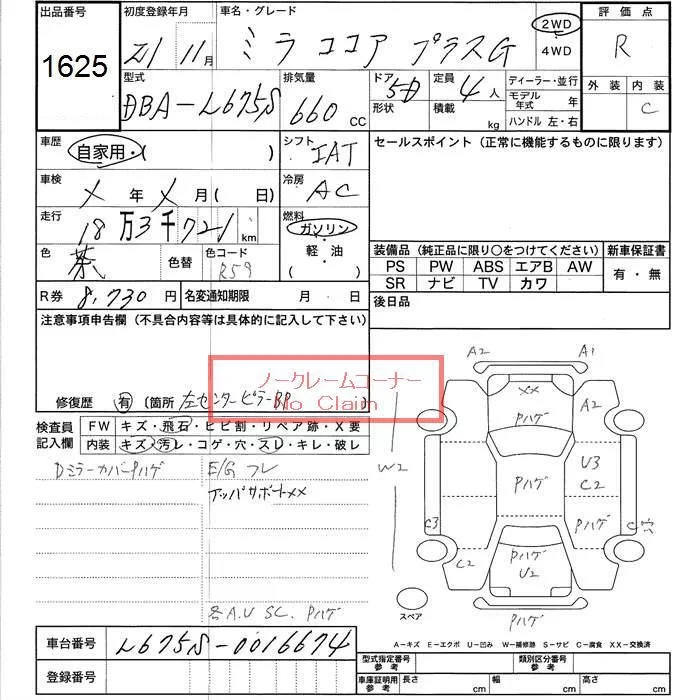 出品番号 初度登録年月 車名・グレード 2WD 4WD 評価点
1625 21 11月 ミラ ココア プラスG R
型式 排気量 ドア 形状 定員 積載 ディーラー・並行 外装 内装
DBA-L675S 660 CC 5D 4人 kg モデル年式 年 C
ハンドル 左・右
車歴 自家用・( ) シフト IAT セールスポイント（正常に機能するものに限ります）
車検 X 年 X 月( 日) 冷房 AC
走行 18万3千721km 燃料 ガソリン
色 茶 色替 色コード R59 軽・油 ( )
装備品（純正品に限り○をつけてください） 新車保証書
PS PW ABS エアB AW 有・無
SR ナビ TV カワ
R券 8,730円 名変通知期限 月 日 後日品
注意事項申告欄（不具合内容等は具体的に記入して下さい）
ノークレームコーナー
No Claim
修復歴 有 〔箇所 左センターピラーBP 〕
検査員記入欄 FW キズ・飛石・ヒビ割・リペア跡・X要
内装 キズ・汚レ・コゲ・穴・スレ・キレ・破レ
Dミラーカバーハゲ E/G フレ
アッパサポートXX
各A.U SC. Pハゲ
A2 A1
XX
Pハゲ A2
W2 Pハゲ U3
C2
C3 Pハゲ C穴
C2 Pハゲ
U2
スペア Pハゲ
A-キズ E-エクボ U-凹み W-補修跡 S-サビ C-腐食 XX-交換済
車台番号 L675S-0016674
登録番号
型式指定番号 参考 類別区分番号 参考
車庫証明用 参考 長さ cm 幅 cm 高さ cm